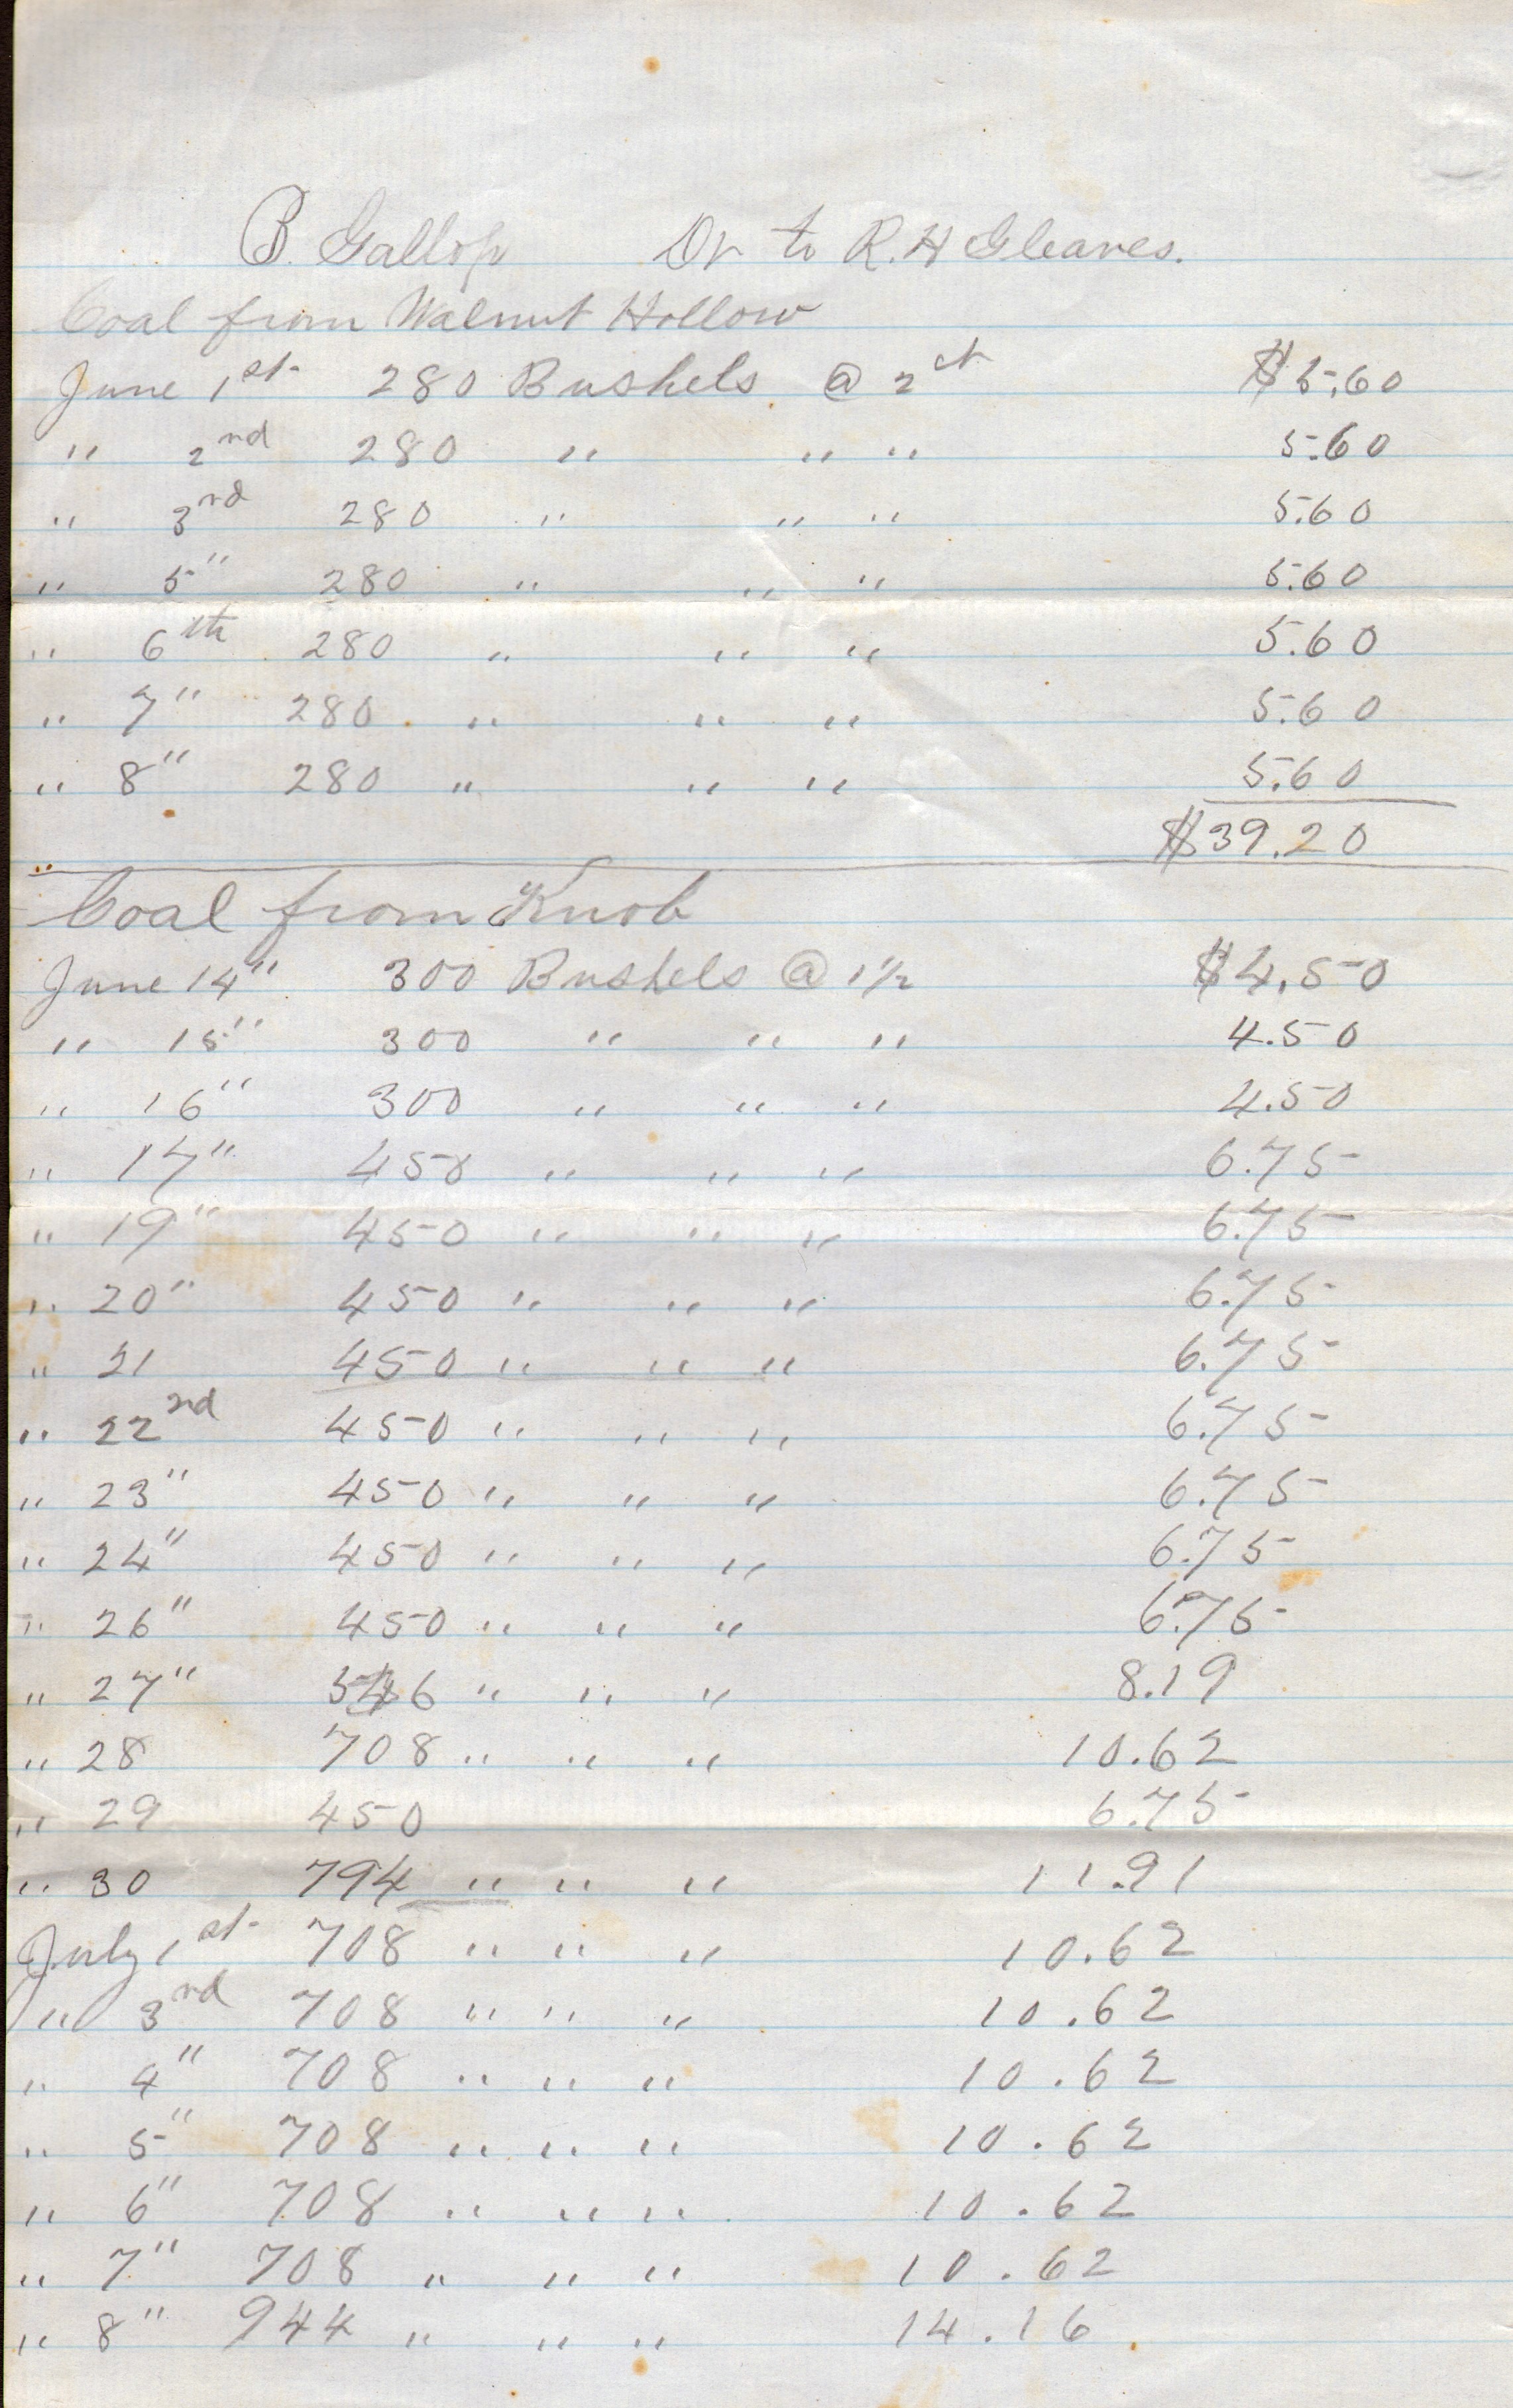 B. Gallop Dr to R. H Gleaves.
Coal from Walnut Hollow
June 1st 280 Bushels @ 2ct $5.60
" 2nd 280 " " " 5.60
" 3rd 280 " " " 5.60
" 5" 280 " " " 5.60
" 6th 280 " " " 5.60
" 7" 280 " " " 5.60
" 8" 280 " " " 5.60
$39.20
Coal from Knob
June 14" 300 Bushels @ 1 1/2 $4.50
" 15" 300 " " " 4.50
" 16" 300 " " " 4.50
" 17" 450 " " " 6.75
" 19" 450 " " " 6.75
" 20" 450 " " " 6.75
" 21 450 " " " 6.75
" 22nd 450 " " " 6.75
" 23" 450 " " " 6.75
" 24" 450 " " " 6.75
" 26" 450 " " " 6.75
" 27" 546 " " " 8.19
" 28 708 " " " 10.62
" 29 450 6.75
" 30 794 " " " 11.91
July 1st 708 " " " 10.62
" 3rd 708 " " " 10.62
" 4" 708 " " " 10.62
" 5" 708 " " " 10.62
" 6" 708 " " " 10.62
" 7" 708 " " " 10.62
" 8" 944 " " " 14.16